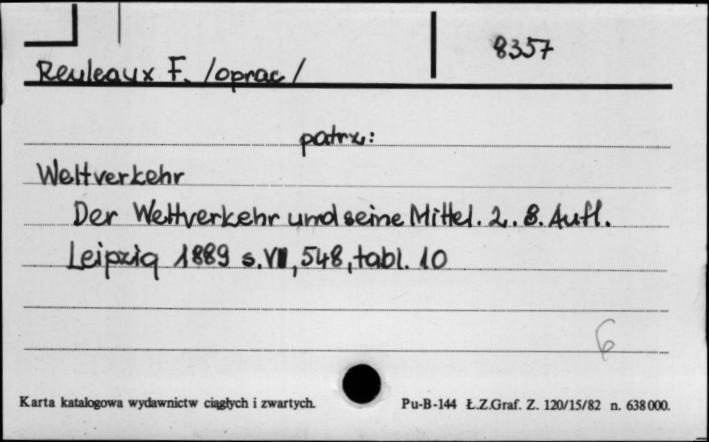 8357
Reuleaux F. /oprac/
patrz:
Weltverkehr
Der Weltverkehr und seine Mittel. 2. 8. Aufl.
Leipzig 1889 s. VII, 548, tabl. 10
6
Karta katalogowa wydawnictw ciągłych i zwartych. Pu-B-144 Ł.Z.Graf. Z. 120/15/82 n. 638000.